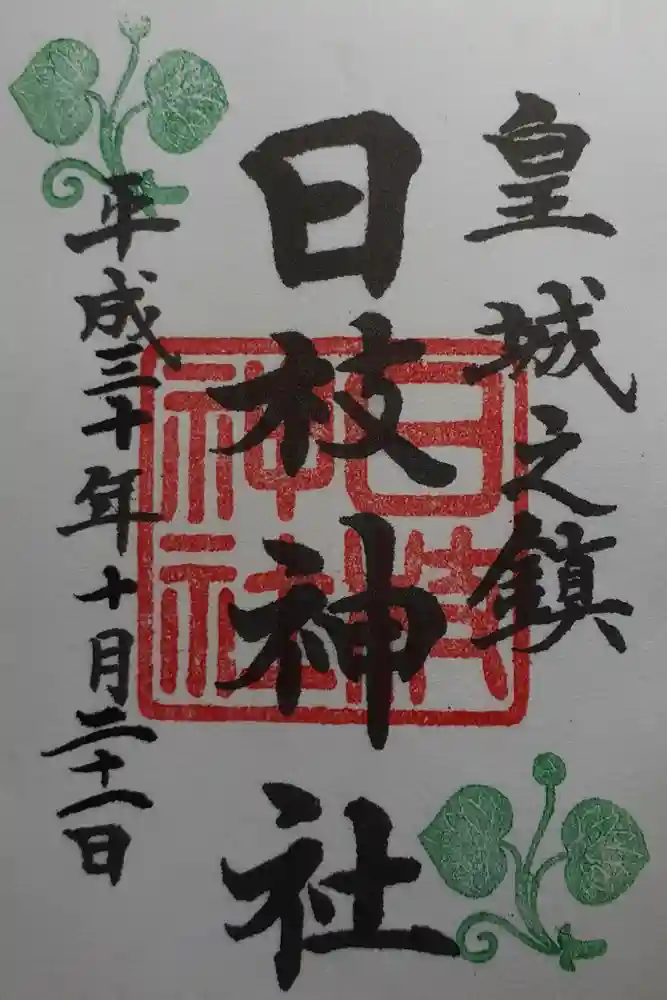 皇城之鎮
日枝神社
平成三十年十月二十一日
日枝
神社